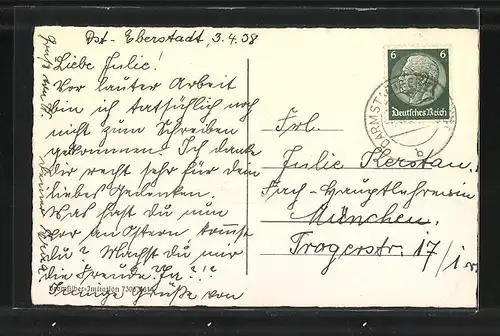 Dst-Eberstadt, 3.4.38
Liebe Julie!
Vor lauter Arbeit
bin ich tatsächlich noch
nicht zum Schreiben
gekommen. Ich danke
Dir recht sehr für dein
liebes Gedenken.
Was hast Du nun
vor an Ostern kommst
Du? Machst Du mir
die Freude, Ja?!!
Innige Grüße von
Bromsilber-Imitation
6 6
Deutsches Reich
DARMSTADT
b
Frl.
Julie Kerstan,
Fach-Hauptlehrerin
München.
Trogerstr. 17/I r.